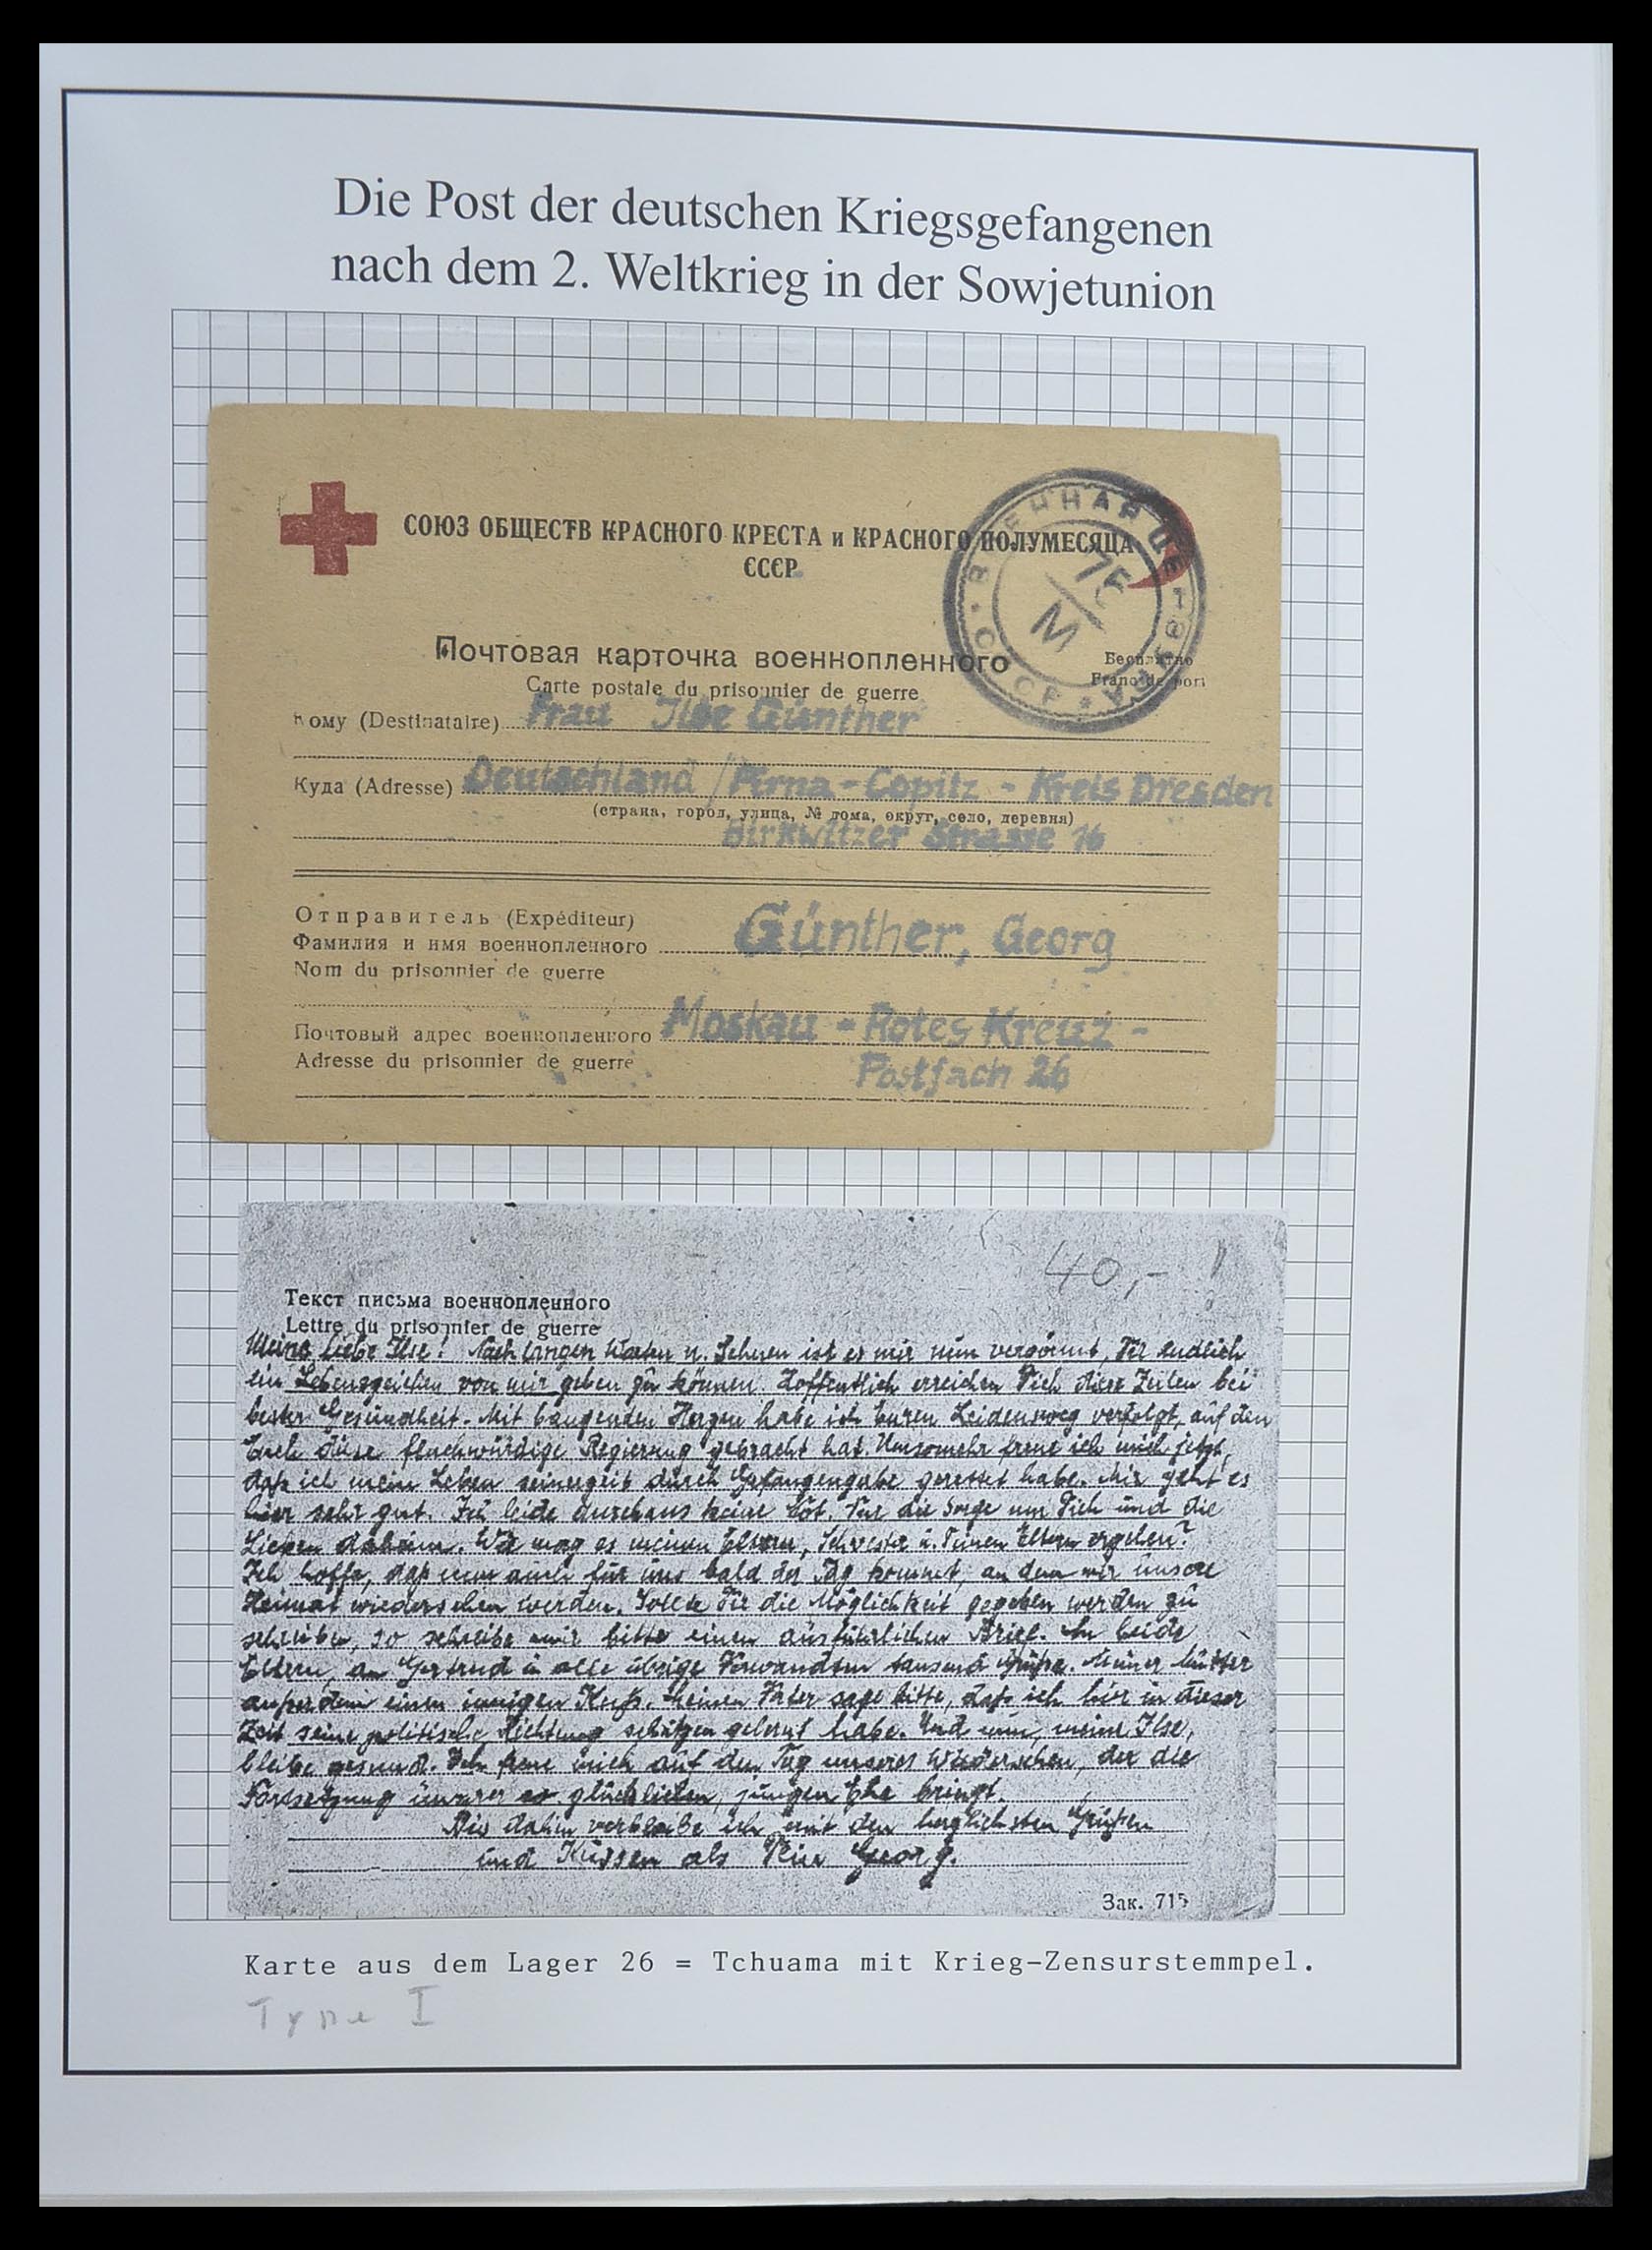 Die Post der deutschen Kriegsgefangenen
nach dem 2. Weltkrieg in der Sowjetunion
СОЮЗ ОБЩЕСТВ КРАСНОГО КРЕСТА и КРАСНОГО ПОЛУМЕСЯЦА
СССР
ВОЕННАЯ ЦЕНЗУРА
СССР
75
М
Почтовая карточка военнопленного
Бесплатно
Carte postale du prisonnier de guerre
Franc de port
Кому (Destinataire) Frau Ilse Günther
Куда (Adresse) Deutschland / Pirna - Copitz - Kreis Dresden
(страна, город, улица, № дома, округ, село, деревня)
Birkwitzer Strasse 16
Отправитель (Expéditeur)
Фамилия и имя военнопленного Günther, Georg
Nom du prisonnier de guerre
Почтовый адрес военнопленного Moskau - Rotes Kreuz -
Adresse du prisonnier de guerre Postfach 26
40,-
Текст письма военнопленного
Lettre du prisonnier de guerre
Meine liebe Ilse! Nach langen Warten u. Sehnen ist es mir nun vergönnt, Dir endlich
ein Lebenszeichen von mir geben zu können. Hoffentlich erreichen Dich diese Zeilen bei
bester Gesundheit. Mit bangenden Herzen habe ich Euren Leidensweg verfolgt, auf den
Euch diese fluchwürdige Regierung gebracht hat. Umsomehr freue ich mich jetzt,
daß ich mein Leben seinerzeit durch Gefangengabe gerettet habe. Mir geht es
hier sehr gut. Ich leide durchaus keine Not. Nur die Sorge um Dich und die
Lieben daheim. Wie mag es meinen Eltern, Schwester u. Deinen Eltern ergehen?
Ich hoffe, daß nun auch für uns bald der Tag kommt, an dem wir unsere
Heimat wiedersehen werden. Sollte Dir die Möglichkeit gegeben werden zu
schreiben, so schreibe mir bitte einen ausführlichen Brief. An beide
Eltern, an Gertrud u. alle übrige Verwandten tausend Grüße. Meiner Mutter
außerdem einen innigen Kuß. Meinen Vater sage bitte, daß ich hier in dieser
Zeit seine politische Richtung schätzen gelernt habe. Und nun, meine Ilse,
bleibe gesund. Ich freue mich auf den Tag unseres Wiedersehen, der die
Fortsetzung unserer so glücklichen, jungen Ehe bringt.
Bis dahin verbleibe ich mit den herzlichsten Grüßen
und Küssen als Dein Georg.
Зак. 715
Karte aus dem Lager 26 = Tchuama mit Krieg-Zensurstemmpel.
Type I